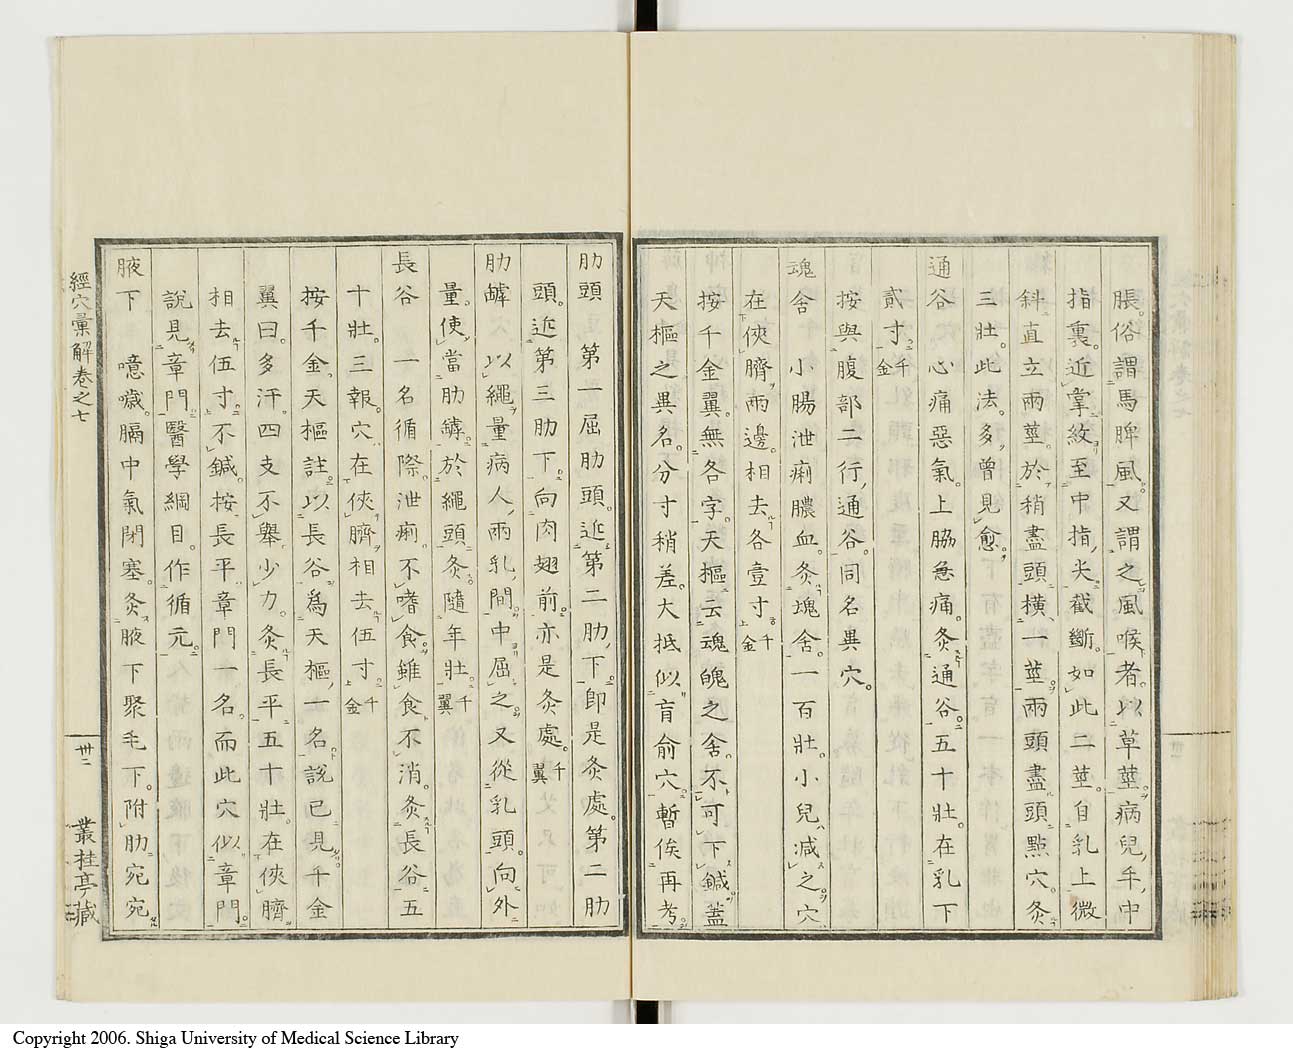 脹。俗謂馬脾風。又謂之風喉者。以草莖。病兒手中
指裏。近掌紋至中指尖截斷。如此二莖。自乳上微
斜直立兩莖。於稍盡頭橫一莖。兩頭盡頭點穴。灸
三壯。此法。多曾見愈。
通谷　心痛惡氣。上脇急痛。灸通谷。五十壯。在乳下
貳寸。千金
按與腹部二行通谷。同名異穴。
魂舍　小腸泄痢膿血。灸魂舍。一百壯。小兒減之穴
在俠臍兩邊。相去各壹寸。千金上
按千金翼。無各字。天樞云魂魄之舍。不可下鍼蓋
天樞之異名。分寸稍差。大抵似肓俞穴。暫俟再考。
肋頭　第一屈肋頭。近第二肋下。即是灸處。第二肋
頭。近第三肋下。向肉翅前。亦是灸處。千翼
肋罅　以繩量病人兩乳間中屈之。又從乳頭向外
量。使當肋罅。於繩頭灸。隨年壯。千翼
長谷　一名循際。泄痢。不嗜食。雖食不消。灸長谷五
十壯。三報。穴在俠臍相去伍寸。千金上
按千金。天樞註。以長谷爲天樞一名。說已見。千金
翼曰。多汗。四支不舉少力。灸長平五十壯。在俠臍
相去伍寸。不鍼。按長平章門一名。而此穴似章門。
說見章門。醫學綱目。作循元。
腋下　噫噦。膈中氣閉塞。灸腋下聚毛下。附肋宛宛
經穴彙解卷之七
卅二
叢桂亭藏
Copyright 2006. Shiga University of Medical Science Library